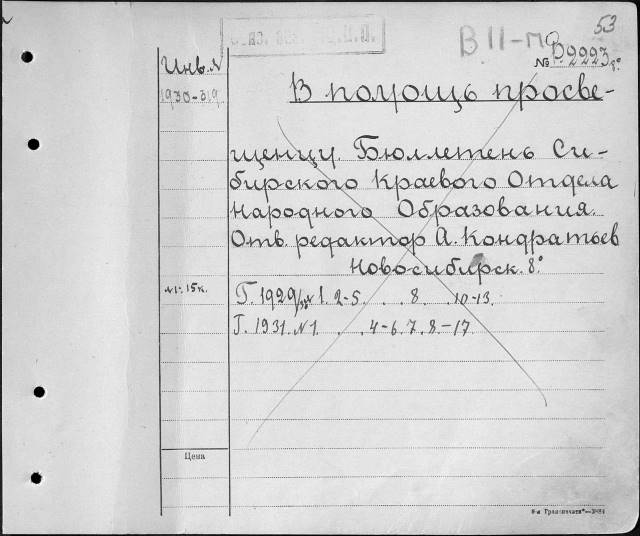 53
В II-п
№ В.2223 8°
Инв. №
1930-319
В помощь просве-
щенцу. Бюллетень Си-
бирского Краевого Отдела
Народного Образования.
Отв. редактор А. Кондратьев
Новосибирск. 8°
№1: 15 к.
Г. 1929/30 № 1. 2-5 . . 8 . 10-13.
Г. 1931. № 1. . . 4-6. 7. 8.-17.
Цена